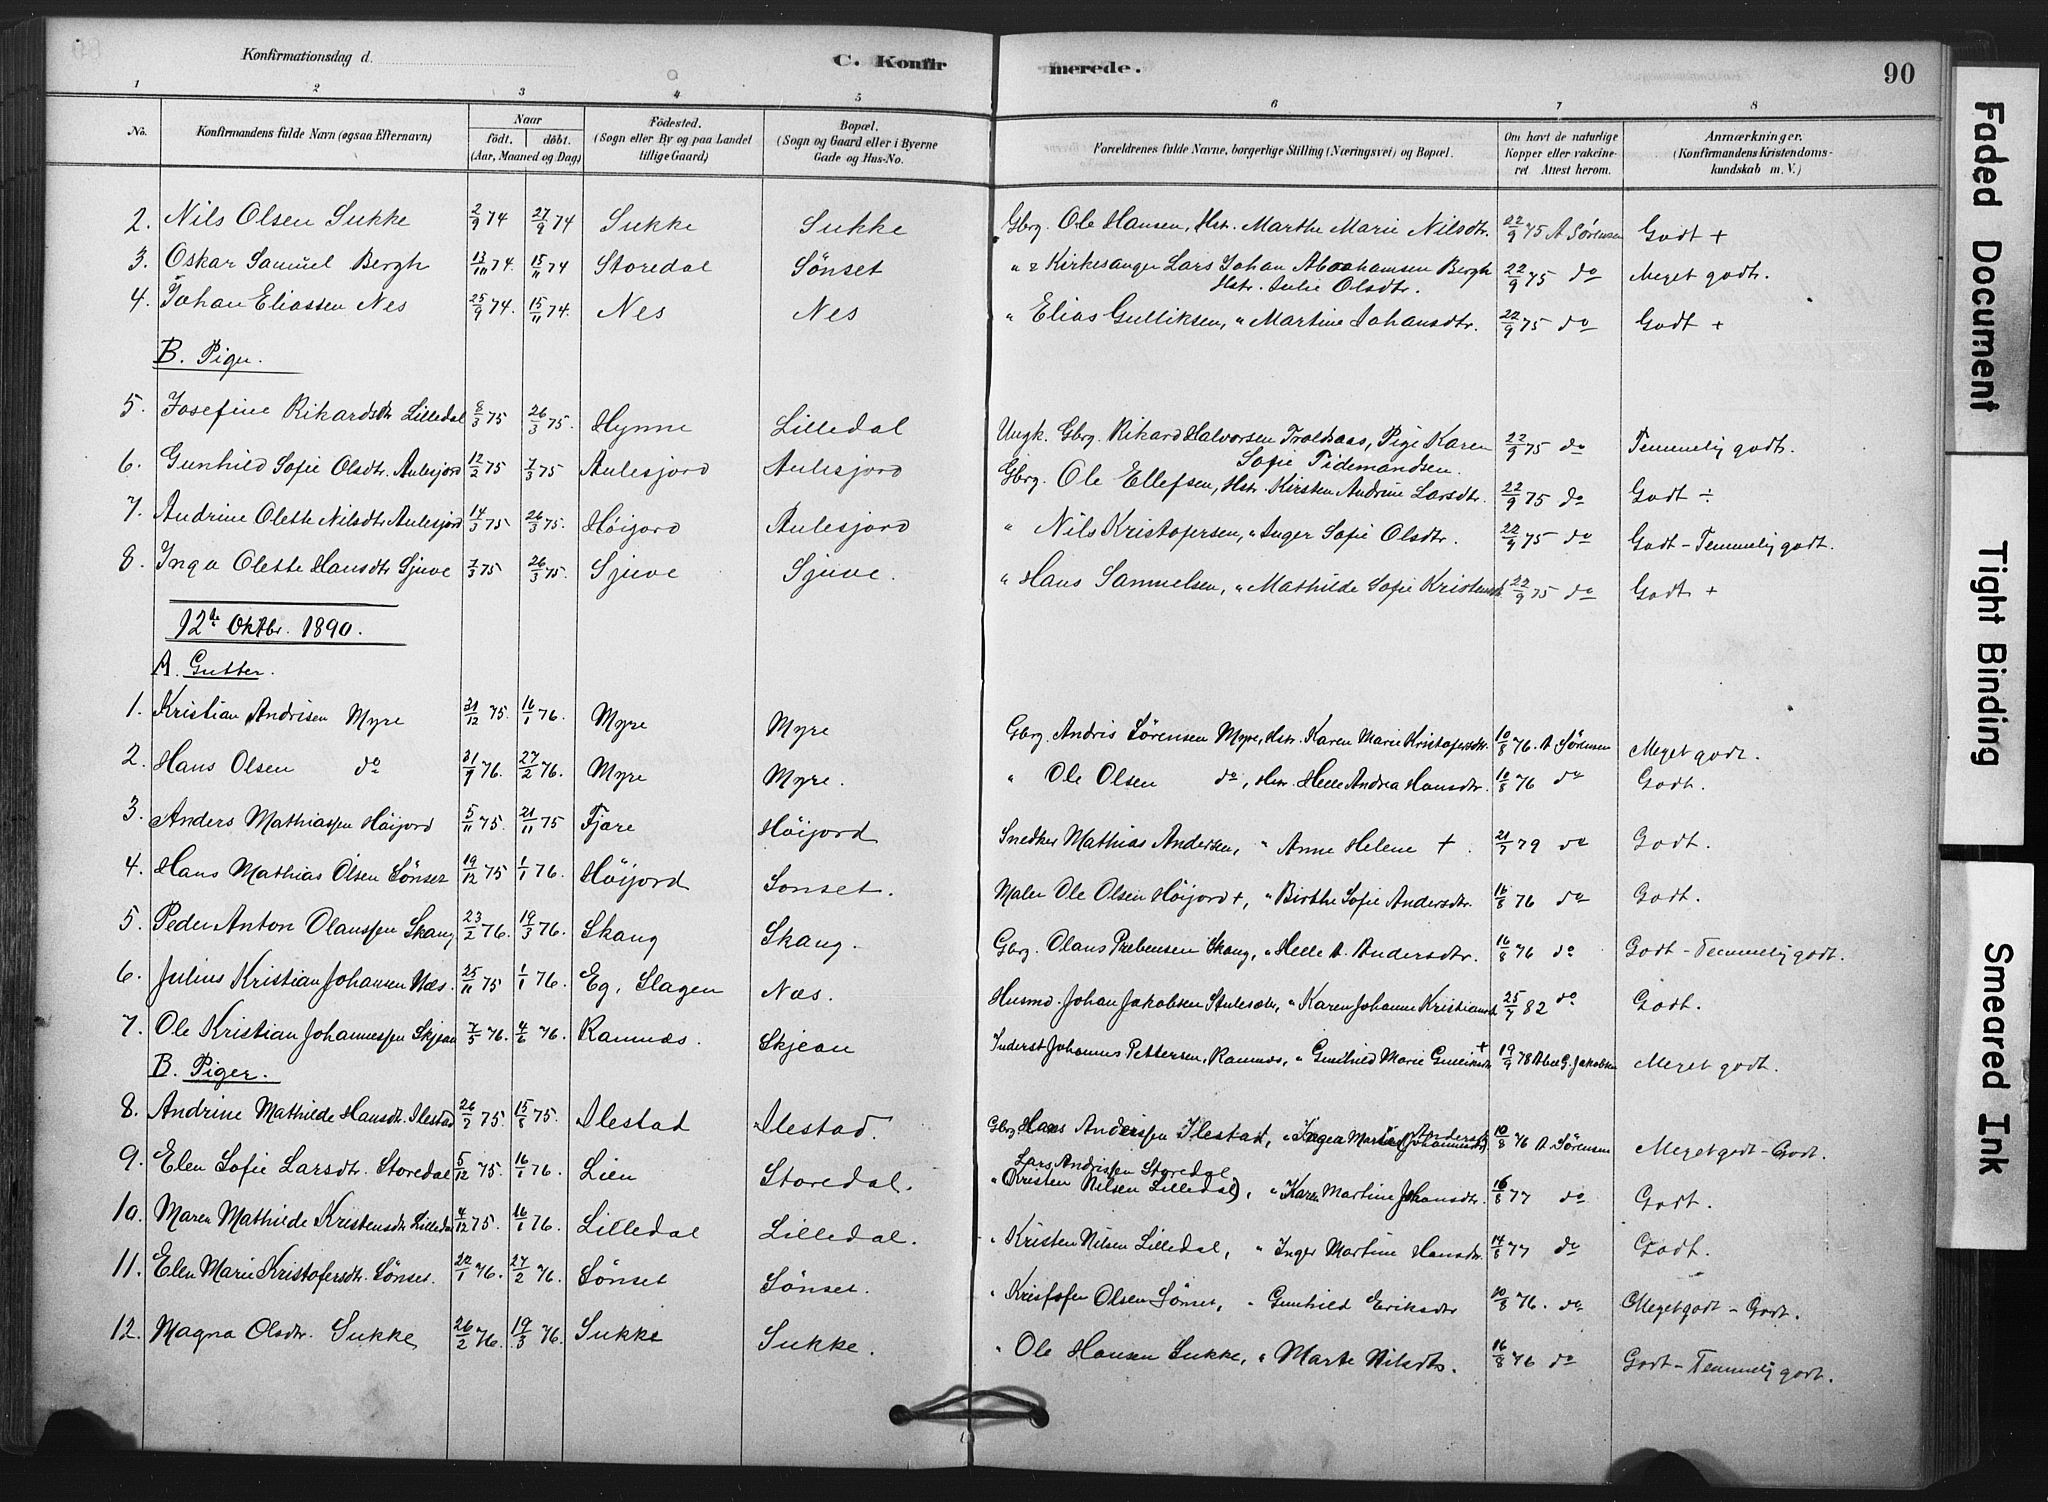 Konfirmationsdag d.
C. Konfirmerede.
90
1 2 3 4 5 6 7 8
No. Konfirmandens fulde Navn (ogsaa Efternavn) Naar födt. döbt. (Aar, Maaned og Dag) Födested. (Sogn eller By og paa Landet tillige Gaard) Bopæl. (Sogn og Gaard eller i Byerne Gade og Hus-No. Forældrenes fulde Navne, borgerlige Stilling (Næringsvei) og Bopæl. Om havt de naturlige Kopper eller vakcineret Attest herom. Anmærkninger. (Konfirmandens Kristendomskundskab m. V.)
2. Nils Olsen Sukke 2/9 74 27/9 74 Sukke Sukke Gbrg. Ole Hansen, Hstr. Marthe Marie Nilsdtr. 22/9 75 A Sørensen Godt +
3. Oskar Samuel Bergh 13/10 74. 15/11 74 Storedal Sönset " Kirkesanger Lars Johan Abrahamsen Bergh Hstr. Julie Olsdtr. 22/9 75 do Meget godt.
4. Johan Eliassen Nes 25/9 74. 15/11 74. Nes Nes " Elias Gulliksen, " Martine Johansdtr. 22/9 75 do Godt +
B. Piger.
5. Josefine Rikardsdtr Lilledal 8/3 75 26/3 75. Hynne Lilledal Ungk. Gbrg. Rikard Halvorsen Troldsaas, Pige Karen Sofie Tidemandsen. 22/9 75 do Temmelig godt.
6. Gunhild Sofie Olsdtr. Aulesjord 12/2 75 7/3 75 Aulesjord Aulesjord Gbrg. Ole Ellefsen, Hstr. Kirsten Andrine Larsdtr. 22/9 75 do Godt ÷
7. Andrine Olette Nilsdtr Aulesjord 14/3 75 26/3 75. Höijord Aulesjord " Nils Kristofersen, " Inger Sofie Olsdtr. 22/9 75 do Godt - Temmelig godt.
8. Inga Olette Hansdtr Sjuve 7/3 75 26/3 75. Sjuve Sjuve. " Hans Samuelsen, " Mathilde Sofie Kristensdtr 22/9 75 do Godt +
12te Oktbr. 1890.
A. Gutter.
1. Kristian Andrisen Myre 21/12 75. 16/1 76. Myre Myre Gbrg. Andris Sörensen Myre, Hstr. Karen Marie Kristofersdtr. 10/8 76. A Sörensen Meget godt.
2. Hans Olsen do 21/9 76. 27/2 76. Myre Myre. " Ole Olsen do, Hstr. Helle Andrea Hansdtr. 10/8 76 do Godt.
3. Anders Mathiassen Höijord 5/11 75. 21/11 75 Fjære Höijord Snedker Mathias Andersen, " Anne Helene +. 21/7 79 do Godt.
4. Hans Mathias Olsen Sönset 19/12 75 1/1 76. Höijord Sonset. Maler Ole Olsen Höijord +, " Birthe Sofie Andersdtr. 16/8 76 do Godt.
5. Peder Anton Olanssen Skaug 23/2 76. 19/3 76. Skaug Skaug. Gbrg. Olans Prebensen Skaug, " Helle A. Andersdtr. 16/8 76 do Godt - Temmelig godt.
6. Julius Kristian Johansen Næs. 25/11 75 1/1 76. Eg, Slagen Næs. Husmd. Johan Jakobsen, " Karen Johanne Kristiansdtr 25/7 82 do Godt.
7. Ole Kristian Johannessen Skjean 7/5 76. 4/6 76. Ramnæs. Skjean Inderst Johannes Pettersen, Ramnæs, " Gunhild Marie Gulliksdtr + 19/9 78 Abel G. Jakobsen Meget godt.
B. Piger.
8. Andrine Mathilde Hansdtr. Ilestad 26/7 75 15/8 75. Ilestad Ilestad. Gbrg Hans Anderssen Ilestad, " Ingea Martine Andersdtr (Johannesdtr) 10/8 76 A. Sörensen Meget godt - Godt.
9. Elen Sofie Larsdtr. Storedal 5/12 75. 16/1 76. Lien Storedal. Lars Andrissen Storedal " (Kristen Nilsen Lilledal), " Karen Martine Johansdtr. 16/8 77 do Godt.
10. Maren Mathilde Kristensdtr Lilledal 4/12 75. 16/1 76. Lilledal Lilledal. " Kristen Nilsen Lilledal, " Inger Martine Hansdtr. 14/8 77 do Godt.
11. Elen Marie Kristofersdtr. Sönset. 22/1 76. 27/2 76. Sönset Sönset. " Kristofer Olsen Sönset, " Gunhild Eriksdtr 10/8 76. do Meget godt - Godt.
12. Magna Olsdtr. Sukke 26/2 76. 19/3 76. Sukke Sukke. " Ole Hansen Sukke, " Marte Nilsdtr. 16/8 76 do Godt - Temmelig godt.
Faded Document
Tight Binding
Smeared Ink